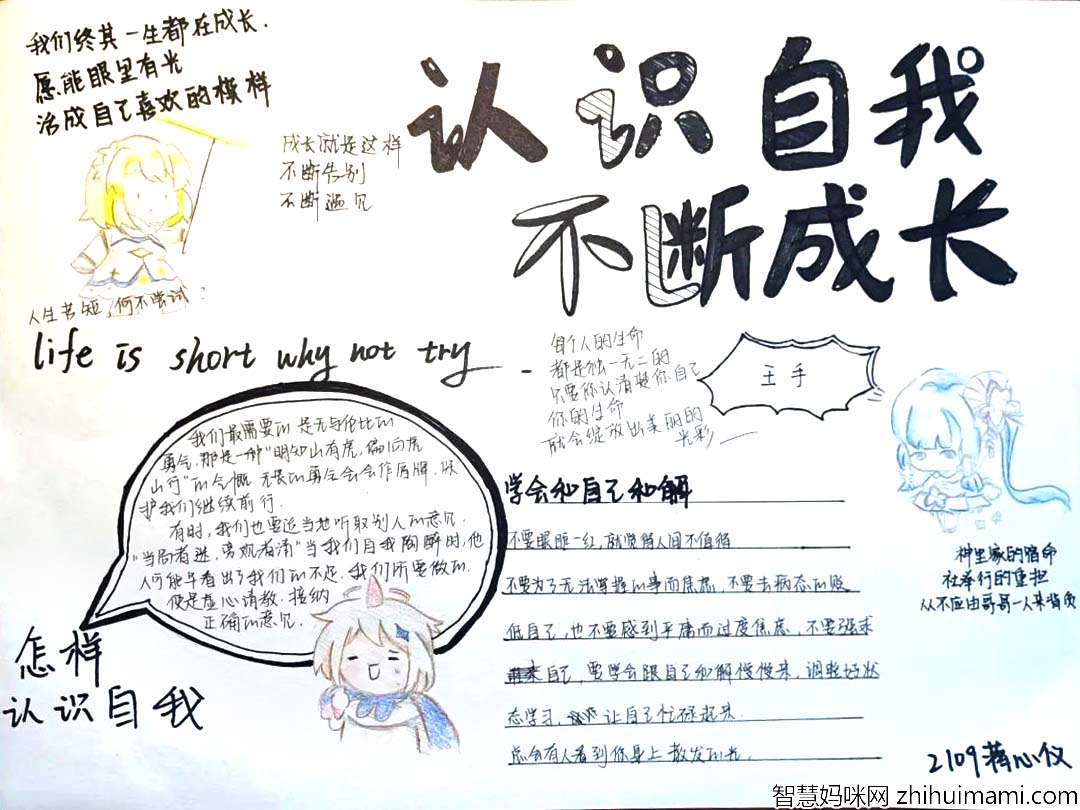 我们终其一生都在成长.
愿能眼里有光
活成自己喜欢的模样
认识自我
不断成长
成长就是这样
不断告别
不断遇见
人生苦短,何不尝试?
life is short why not try
每个人的生命
都是独一无二的
只要你认清楚你自己
你的生命
就会绽放出美丽的
光彩
王手
我们最需要的是无与伦比的
勇气.那是一种"明知山有虎,偏向虎
山行"的气概.无畏的勇气会会作盾牌,保
护我们继续前行.
有时,我们也要适当地听取别人的意见.
"当局者迷,旁观者清"当我们自我陶醉时,他
人可能早看出了我们的不足.我们所要做的.
便是虚心请教.接纳
正确的意见.
怎样
认识自我
学会和自己和解
不要眼眶一红,就觉得人间不值得
不要为了无法掌握的事而焦虑,不要去病态的贬
低自己,也不要感到平庸而过度焦虑,不要强求
自己,要学会跟自己和解慢慢来,调整好状
态学习,让自己忙碌起来.
总会有人看到你身上散发的光.
神里家的宿命
社奉行的重担
从不应由哥哥一人来背负
2109蒋心仪
智慧妈咪网 zhihuimami.com